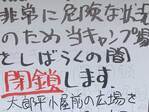 非常に危険な状況
のため当キャンプ場
としばらくの間
閉鎖します
太郎平小屋前の広場を